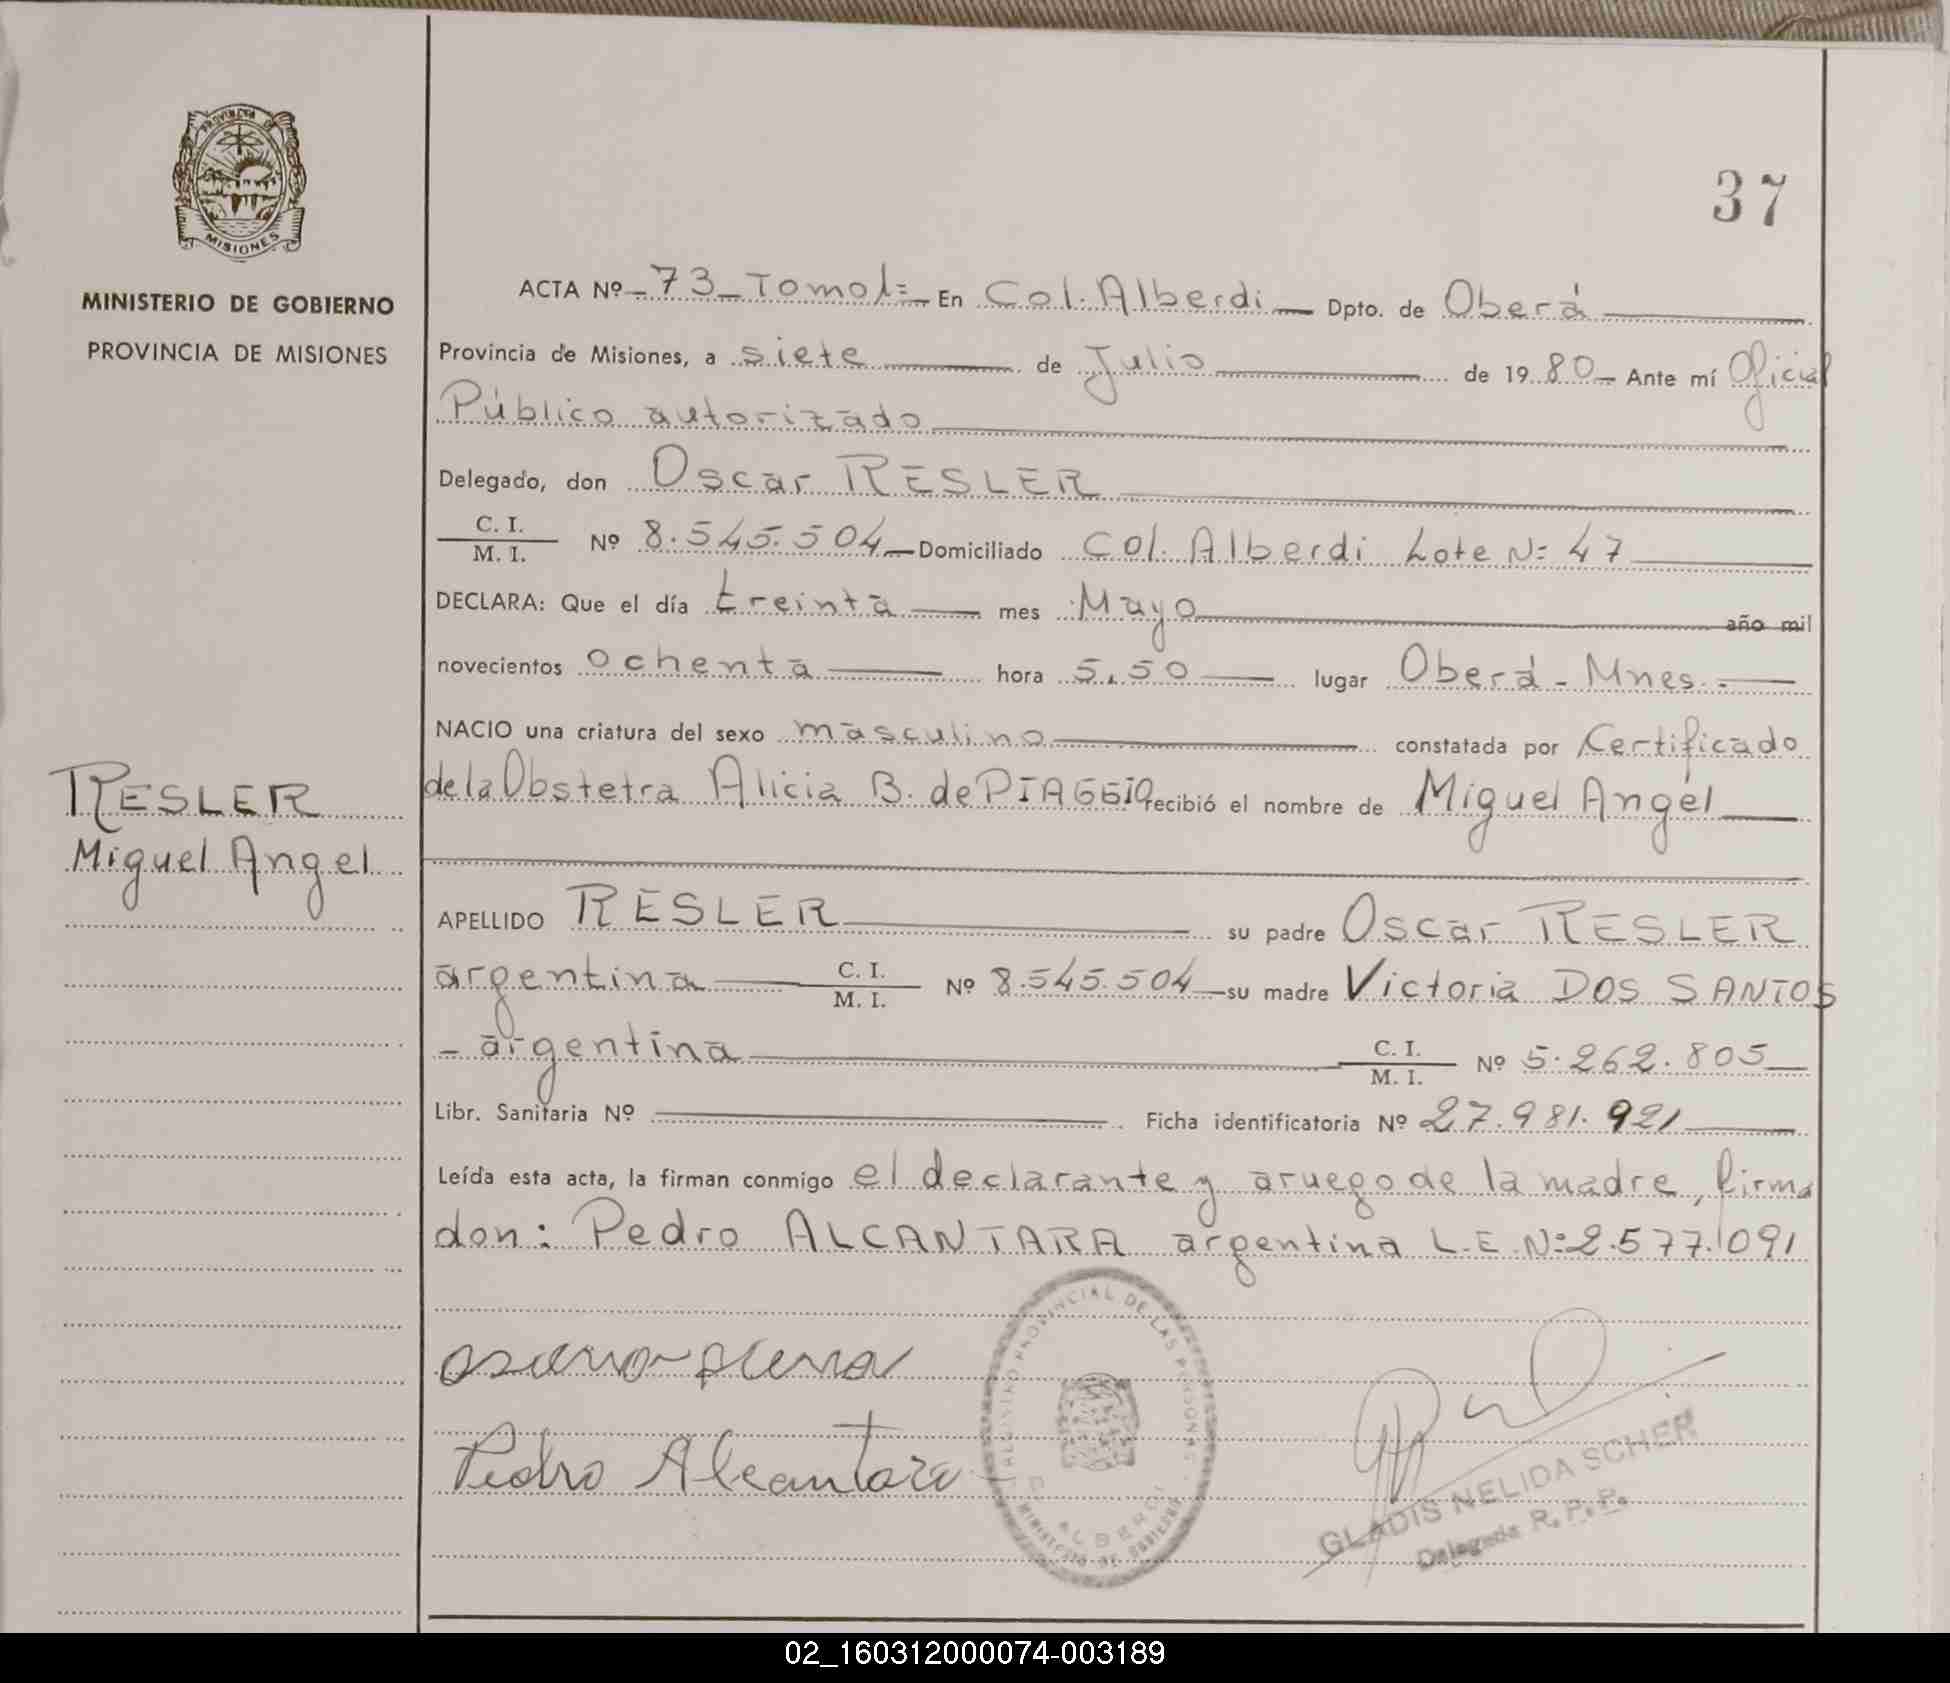 PROVINCIA DE
MISIONES
MINISTERIO DE GOBIERNO
PROVINCIA DE MISIONES
RESLER
Miguel Angel
37
ACTA Nº 73 Tomo I= En Col. Alberdi Dpto. de Oberá
Provincia de Misiones, a siete de Julio de 1980 Ante mí Oficial
Público autorizado
Delegado, don Oscar RESLER
C. I.
M. I. Nº 8.545.504 Domiciliado Col. Alberdi Lote N= 47
DECLARA: Que el día treinta mes Mayo año mil
novecientos ochenta hora 5,50 lugar Oberá - Mnes.
NACIO una criatura del sexo masculino constatada por Certificado
de la Obstetra Alicia B. de PIAGGIO recibió el nombre de Miguel Angel
APELLIDO RESLER su padre Oscar RESLER
argentina C. I.
M. I. Nº 8.545.504 su madre Victoria DOS SANTOS
- argentina C. I.
M. I. Nº 5.262.805
Libr. Sanitaria Nº Ficha identificatoria Nº 27.981.921
Leída esta acta, la firman conmigo el declarante y a ruego de la madre, firma
don: Pedro ALCANTARA argentina L.E. N=2.577.091
Pedro Alcantara
PROVINCIAL DE LAS PERSONAS
ALBERDI
MINISTERIO DE GOBIERNO
GLADIS NELIDA SCHER
Delegada R. P. P.
02_160312000074-003189